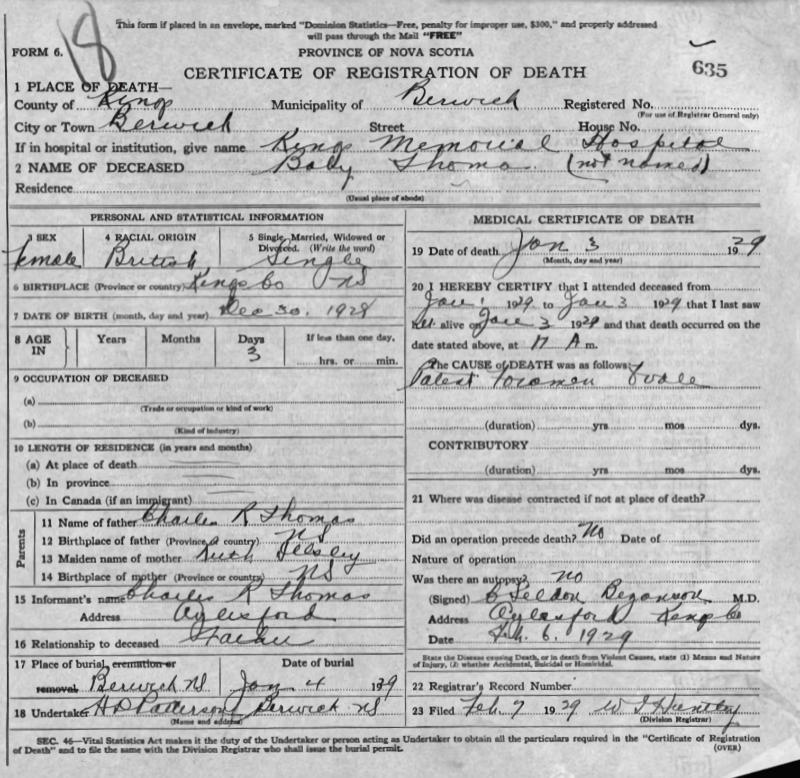 This form if placed in an envelope, marked "Dominion Statistics—Free, penalty for improper use, $300," and properly addressed
will pass through the Mail "FREE"
18
FORM 6.
PROVINCE OF NOVA SCOTIA
CERTIFICATE OF REGISTRATION OF DEATH
635
1 PLACE OF DEATH—
County of Kings Municipality of Berwick Registered No.
(For use of Registrar General only)
City or Town Berwick Street House No.
If in hospital or institution, give name Kings Memorial Hospital
2 NAME OF DECEASED Baby Thomas (not named)
Residence
(Usual place of abode)
PERSONAL AND STATISTICAL INFORMATION
3 SEX 4 RACIAL ORIGIN 5 Single, Married, Widowed or Divorced. (Write the word)
Female British Single
6 BIRTHPLACE (Province or country) Kings Co NS
7 DATE OF BIRTH (month, day and year) Dec 30, 1928
8 AGE IN Years Months Days If less than one day,
3
hrs. or min.
9 OCCUPATION OF DECEASED
(a)
(Trade or occupation or kind of work)
(b)
(Kind of Industry)
10 LENGTH OF RESIDENCE (in years and months)
(a) At place of death
(b) In province
(c) In Canada (if an immigrant)
Parents
11 Name of father Charles R Thomas
12 Birthplace of father (Province or country) NS
13 Maiden name of mother Ruth Illsley
14 Birthplace of mother (Province or country) NS
15 Informant's name Charles R Thomas
Address Aylesford
16 Relationship to deceased Father
17 Place of burial, cremation or removal Date of burial
Berwick NS Jan 4 1929
18 Undertaker H D Patterson Berwick NS
(Name and address)
MEDICAL CERTIFICATE OF DEATH
19 Date of death Jan 3 1929
(Month, day and year)
20 I HEREBY CERTIFY that I attended deceased from
Jan 1 1929 to Jan 3 1929 that I last saw
her alive on Jan 3 1929 and that death occurred on the
date stated above, at 11 A m.
The CAUSE of DEATH was as follows:
Patent Foramen Ovale
(duration) yrs mos dys.
CONTRIBUTORY
(duration) yrs mos dys.
21 Where was disease contracted if not at place of death?
Did an operation precede death? No Date of
Nature of operation
Was there an autopsy? no
(Signed) Seldon Bezanson M.D.
Address Aylesford Kings Co
Date Feb. 6, 1929
State the Disease causing Death, or in death from Violent Causes, state (1) Means and Nature
of Injury, (2) whether Accidental, Suicidal or Homicidal.
22 Registrar's Record Number
23 Filed Feb 7 1929 Huntley
(Division Registrar)
SEC. 46—Vital Statistics Act makes it the duty of the Undertaker or person acting as Undertaker to obtain all the particulars required in the "Certificate of Registration
of Death" and to file the same with the Division Registrar who shall issue the burial permit.
(OVER)